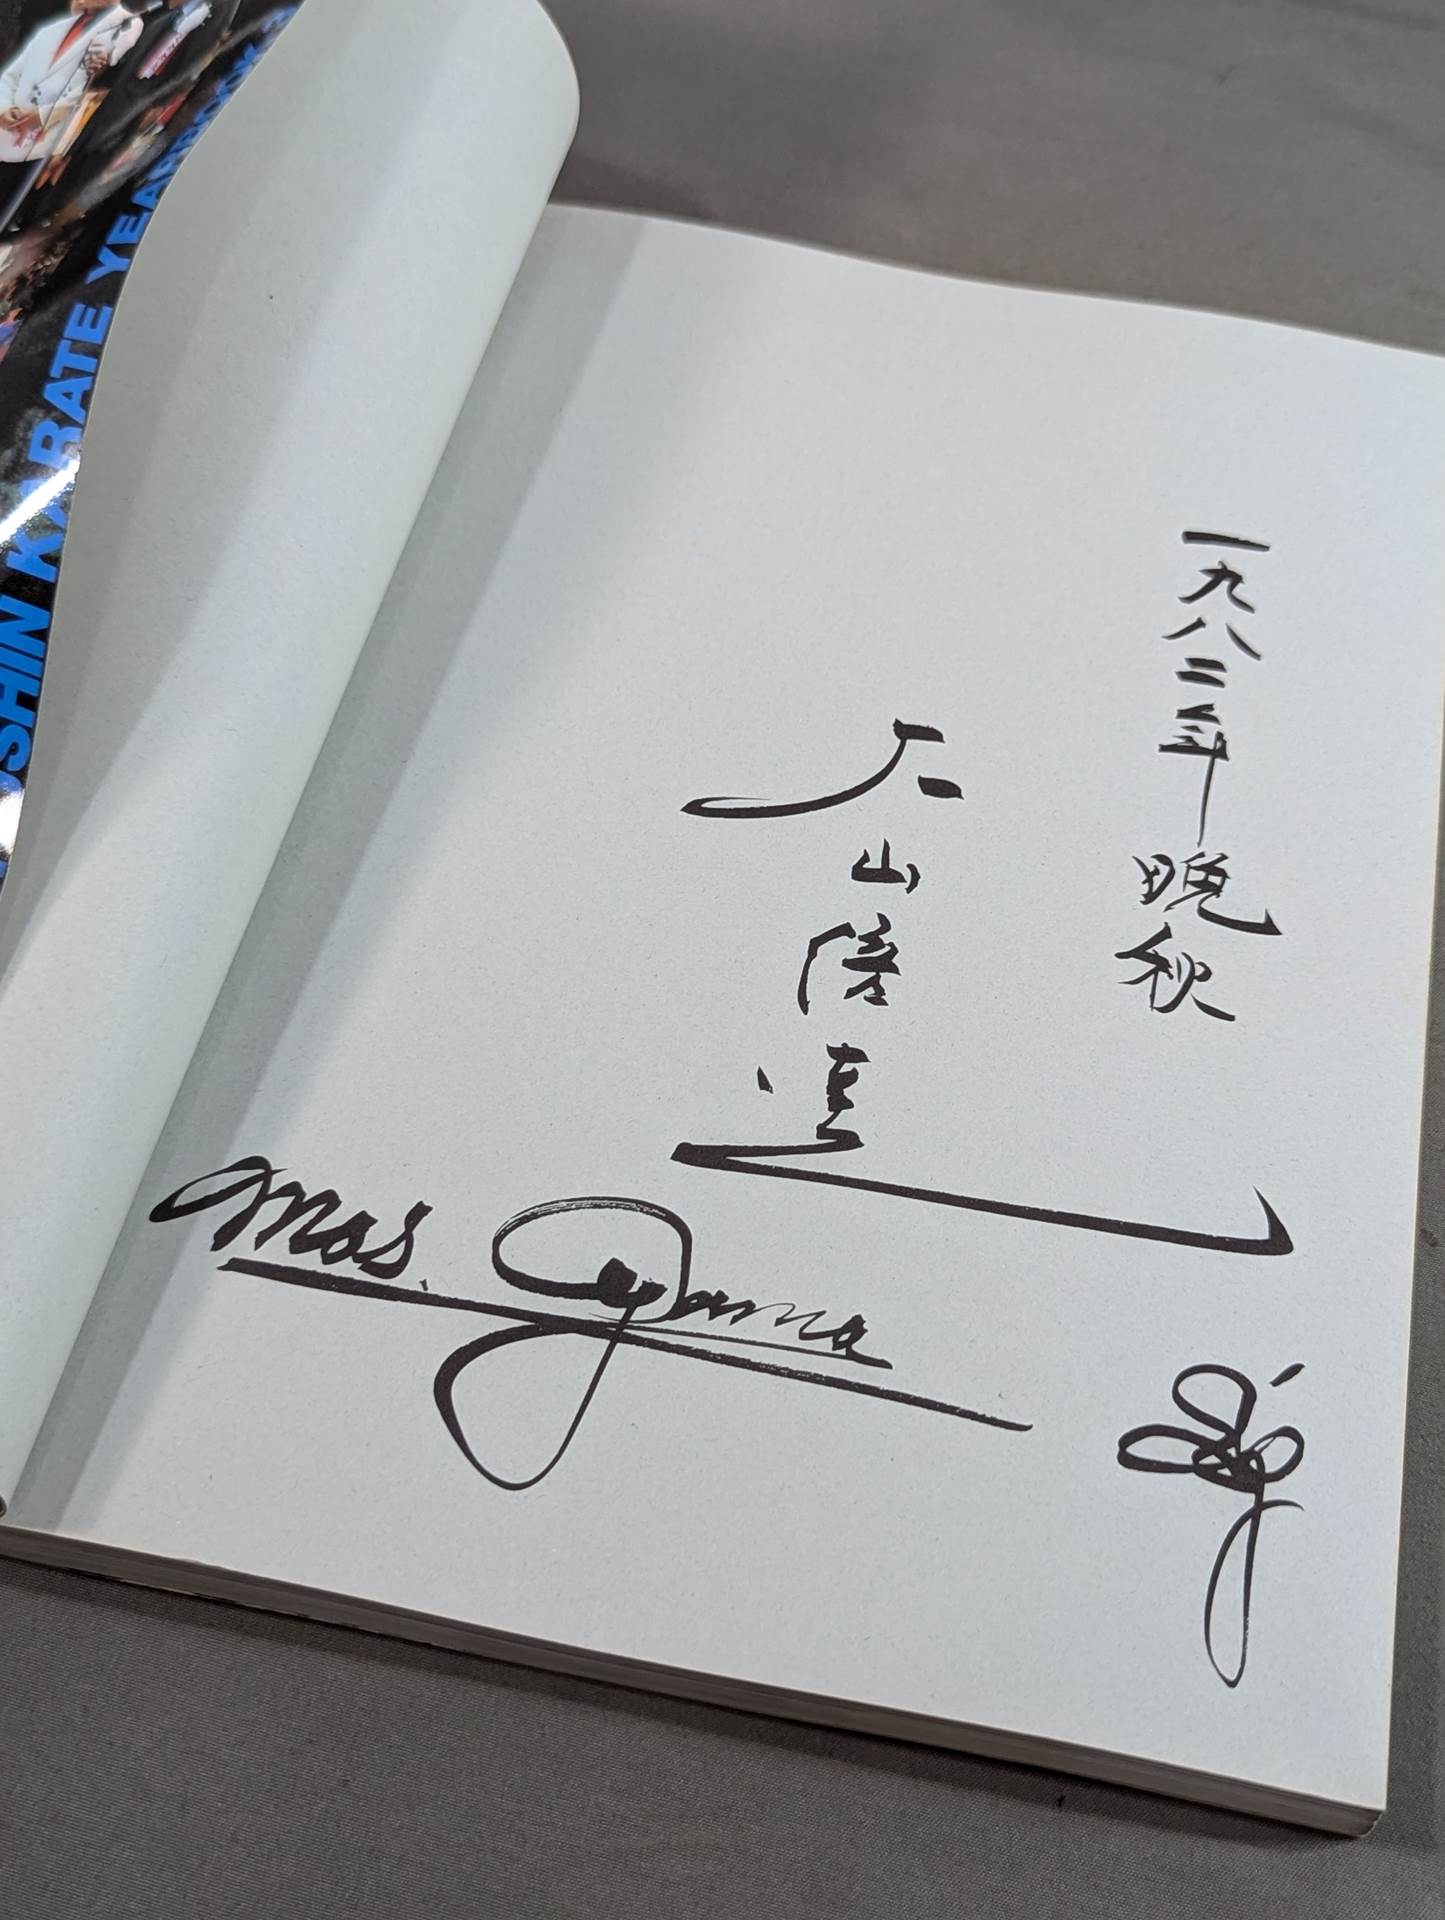 一九八二年晩秋
大山倍達
Mas. Oyama
SHIN KARATE YEARBOOK